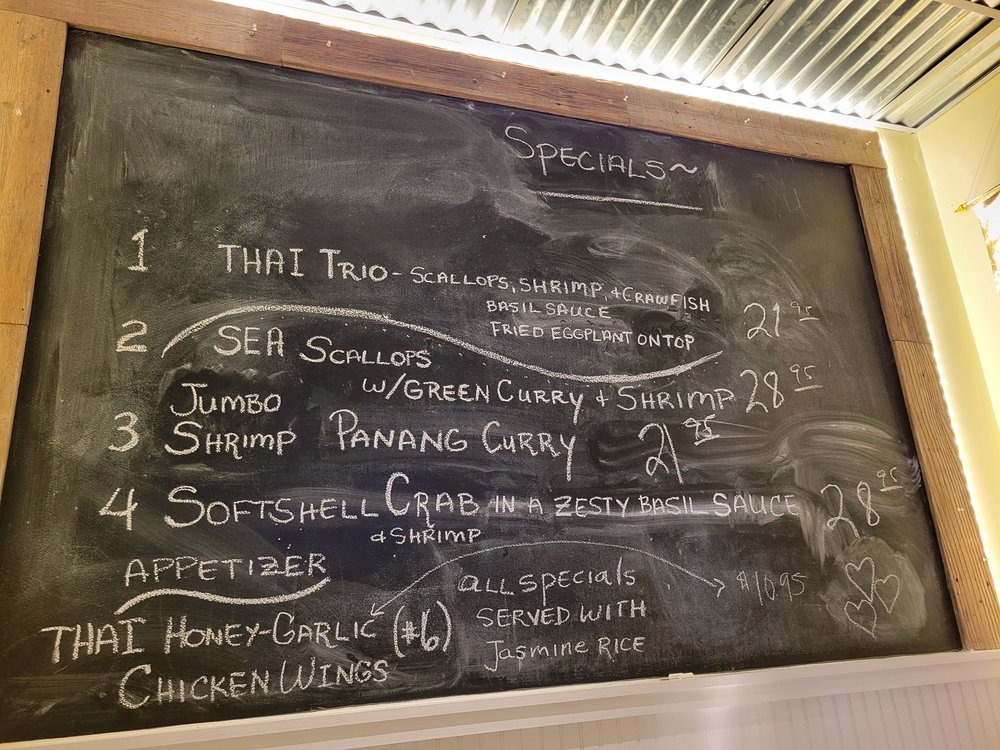 SPECIALS~
1 THAI TRIO - SCALLOPS, SHRIMP, + CRAWFISH
BASIL SAUCE
FRIED EGGPLANT ON TOP 21 95
2 SEA SCALLOPS
W/ GREEN CURRY + SHRIMP 28 95
3 JUMBO
SHRIMP PANANG CURRY 21 95
4 SOFTSHELL CRAB IN A ZESTY BASIL SAUCE 28 95
+ SHRIMP
APPETIZER
THAI HONEY-GARLIC (#6)
CHICKEN WINGS
$10.95
ALL SPECIALS
SERVED WITH
JASMINE RICE